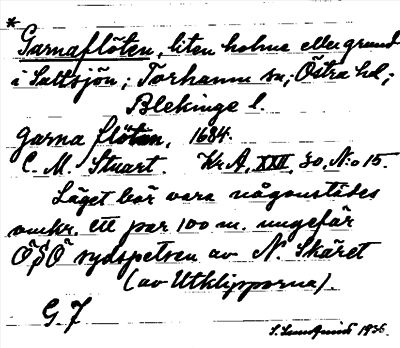 *
Garnaflöten, liten holme eller grund
i Saltsjön; Torhamn sn; Östra hd;
Blekinge l.
Garna flöten, 1684.
C. M. Stuart. Kr.A, XXII, 30, N:o 15.
Läget bör vara någonstädes
omkr. ett par 100 m. ungefär
ÖSÖ sydspetsen av N. Skäret
(av Utklipporna).
G. 7
S. Lundquist 1936.